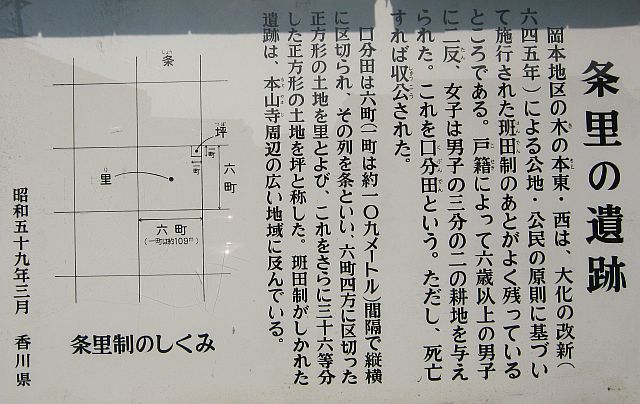 条里の遺跡
岡本地区の木の本東・西は、大化の改新(
六四五年)による公地・公民の原則に基づい
て施行された班田制のあとがよく残っている
ところである。戸籍によって六歳以上の男子
に二反、女子は男子の三分の二の耕地を与え
られた。これを口分田という。ただし、死亡
すれば収公された。
口分田は六町(一町は約一〇九メートル)間隔で縦横
に区切られ、その列を条といい、六町四方に区切った
正方形の土地を里とよび、これをさらに三十六等分
した正方形の土地を坪と称した。班田制がしかれた
遺跡は、本山寺周辺の広い地域に及んでいる。
条
坪
一町
一町
里
六町
六町
(一町は約109m)
条里制のしくみ
昭和五十九年三月 香川県